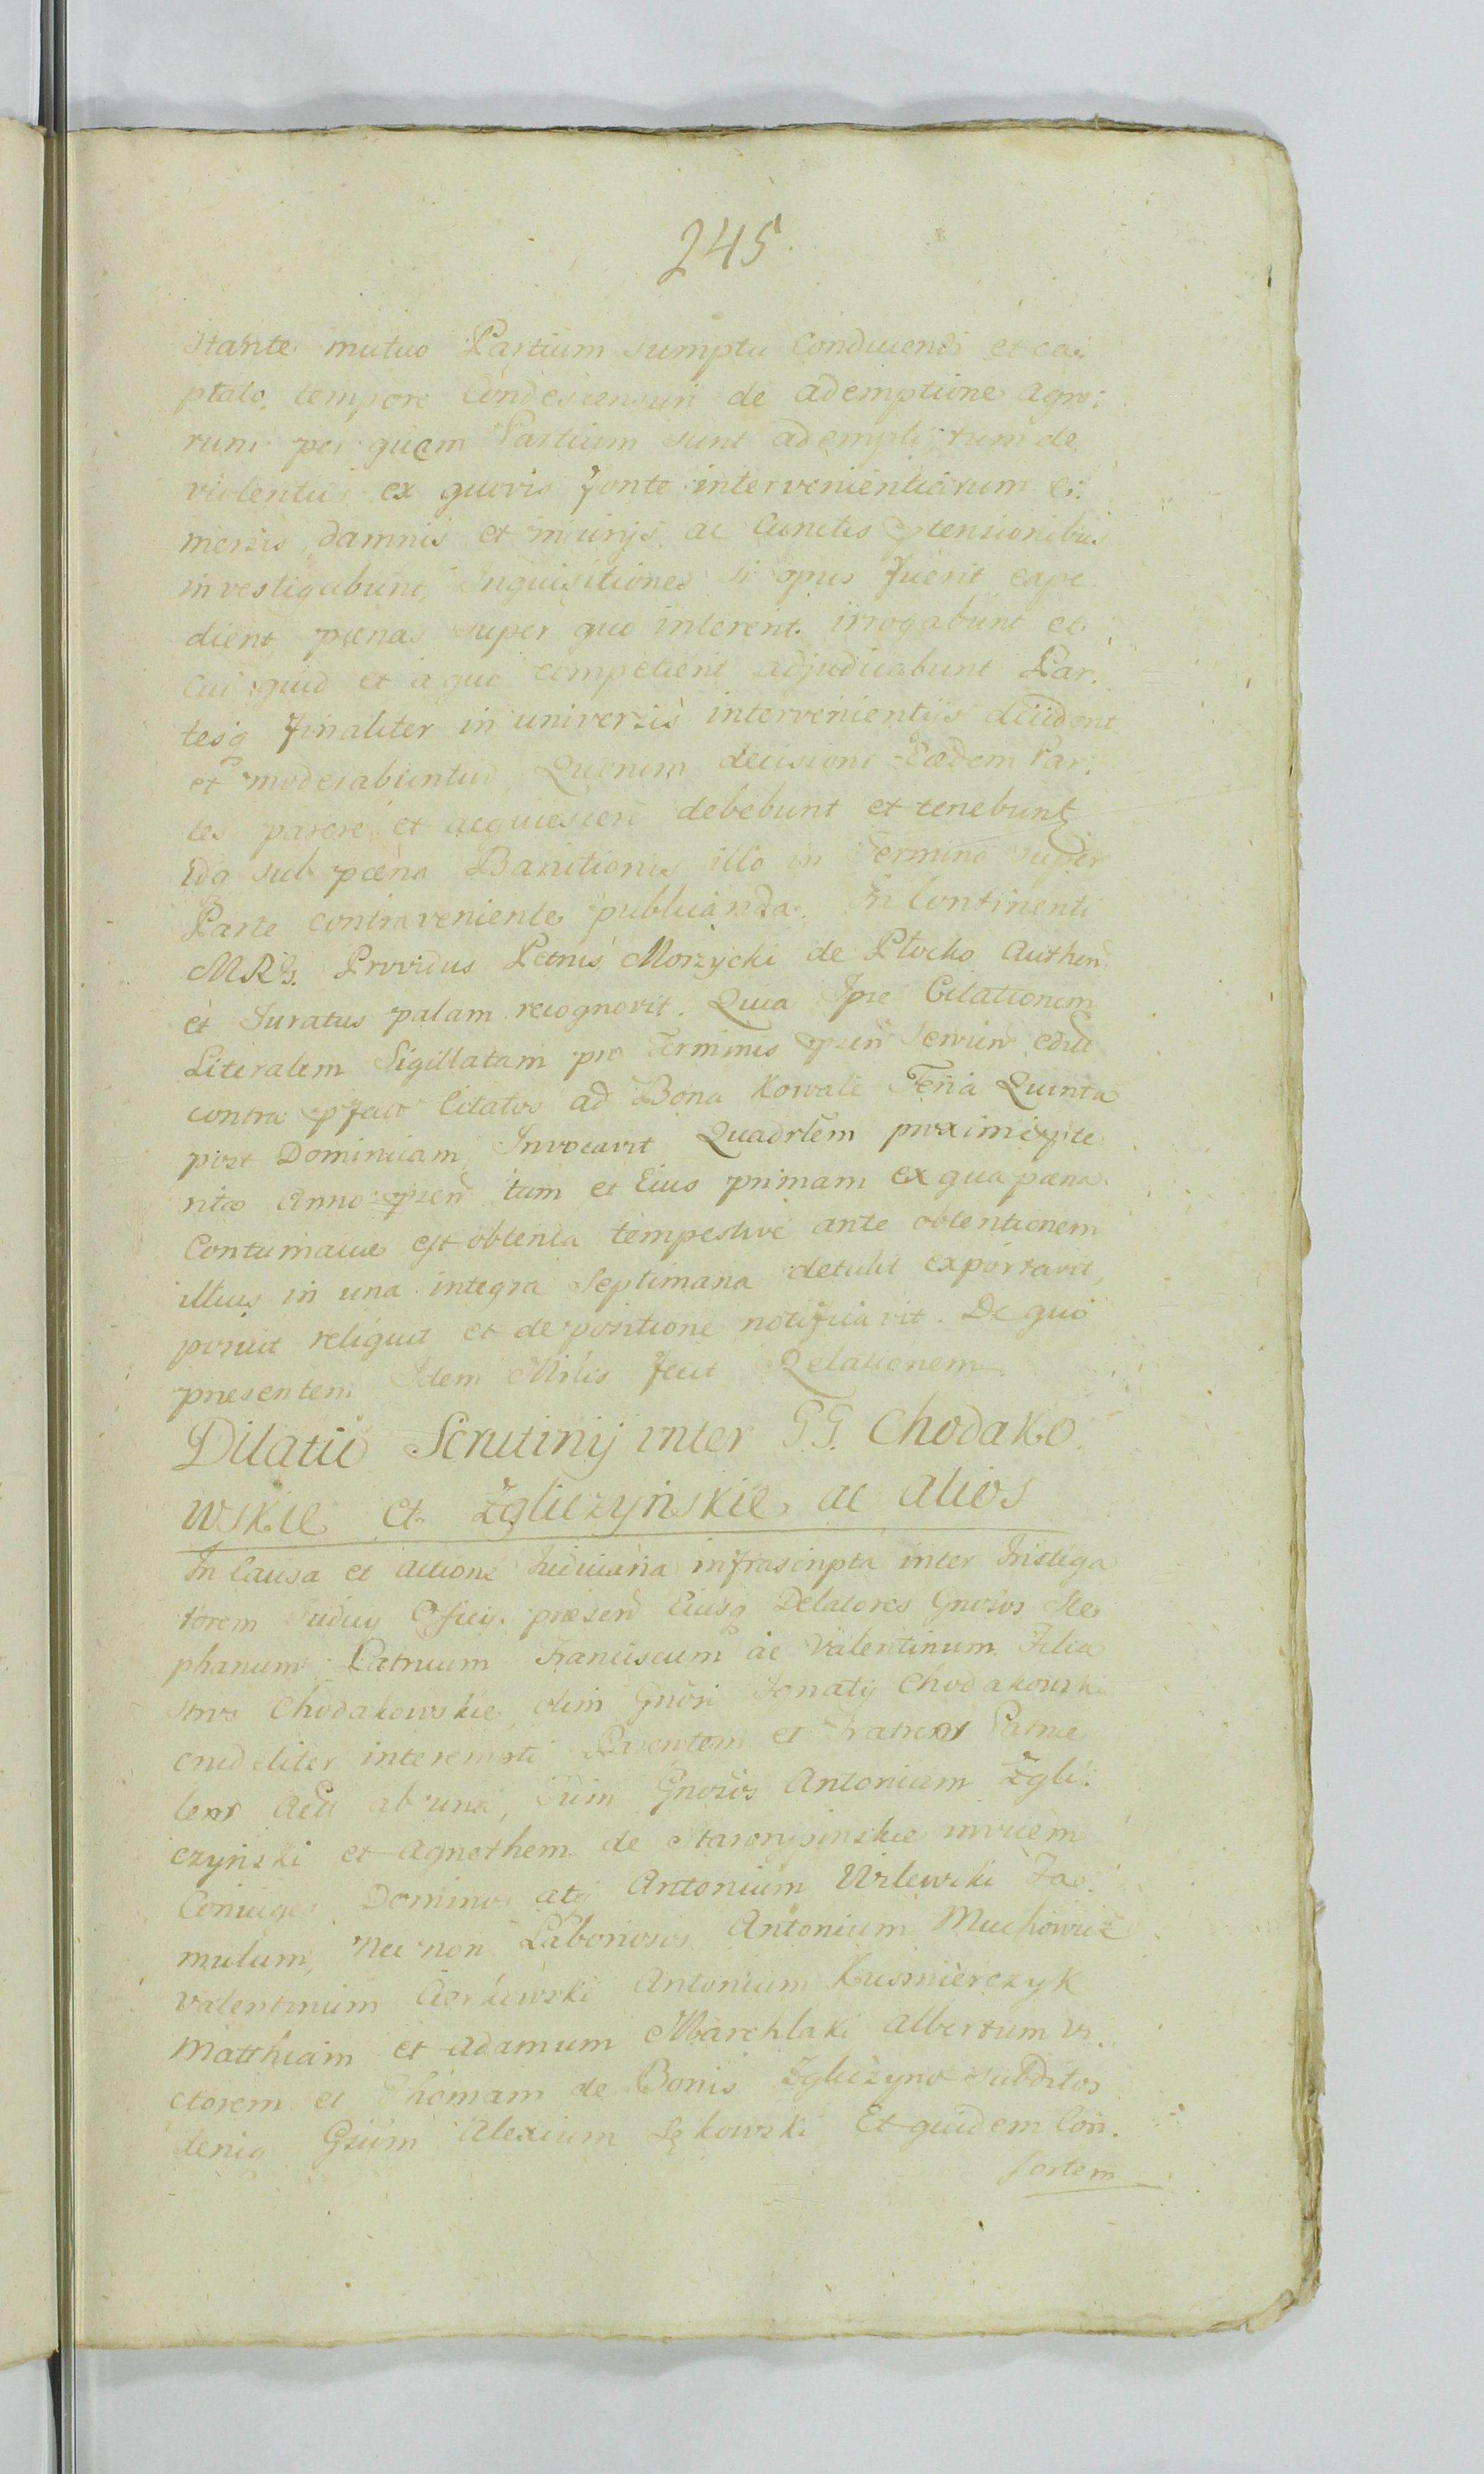 245
stante mutuo Partium sumptu conducend et ca:
ptato tempore Condescensuri de ademptione agro:
rum per quem Partium sunt adempti, tum de
violentijs ex quovis fonte intervenientiarum e:
mersis, damnis et iniurijs ac cunctis ptensionibus
investigabunt, Inquisitiones si opus fuerit expe
dient pœnas super quo interent. irrogabunt et
cui quid et a quo competierit adjudicabunt Par:
tesq finaliter in universis intervenientijs decident
et moderabuntur Quorum decisioni Eædem Par:
tes parere et acquiescere debebunt et tenebunt
idq sub pœna Banitionis illo in Termino super
Parte contraveniente publicanda. In Continenti
MRG. Providus Petrus Morzycki de Płocko Authen
et Juratus palam recognovit. Quia Ipse Citationem
Literalem Sigillatam pro Terminis psen Servien edit
contra pfatos Citatos ad Bona Kowale Feria Quinta
post Dominicam Invocavit Quadrlem proxime pte
rita Anno psen tum et Eius primam ex qua pœna
Contumaciæ est obtenta tempestive ante obtentionem
illius in una integra Septimana detulit exportavit,
posuit reliquit et de positione notificavit. De quo
præsentem Idem Mnlis fecit Relationem
Dilatio Scrutinij inter G.G. Chodako
wskie et Zgliczyńskie, ac alios
In Causa et Actione Judiciaria infrascripta inter Instiga
torem Judicy Officij præsen Eiusq Delatores Gnosos Ste
phanum Patruum Franciscum ac Valentinum Filia
stros Chodakowskie olim Gnosi Ignatij Chodakowski
crudeliter interempti Parentem et Fratres Patrue
les Act ab una, Tum Gnosos Antonium Zgli:
czyński et Agnethem de Starorypinskie invicem
Coniuges Dominos atq Antonium Wilewski Fa:
mulum, nec non Laboriosos Antonium Muchowicz
Valentinum Antonium Kusmierczyk
Matthiam et Adamum Marchlaki Albertum Vi:
ctorem et Thomam de Bonis Zgliczyno subditos
deniq Gsum Alexium Łękowski Et quidem Con:
sortem